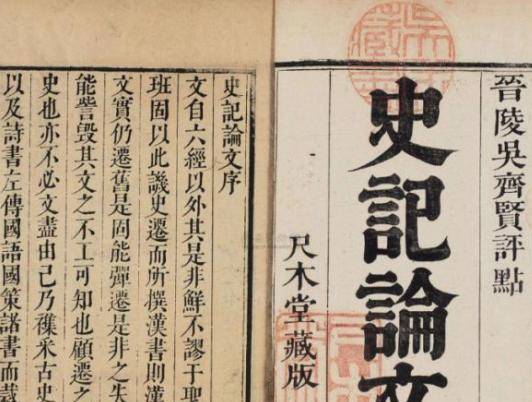 晉陵吳齊賢評點
史記論文
尺木堂藏版
史記論文序
文自六經以外其是非鮮不謬于聖
班固以此譏史遷而所撰漢書則漢
文實仍遷舊是固能彈遷是非之失
能訾毀其文之不工可知也顧遷之
史也亦不必文盡由己乃襍采古史
以及詩書左傳國語國策諸書而裁